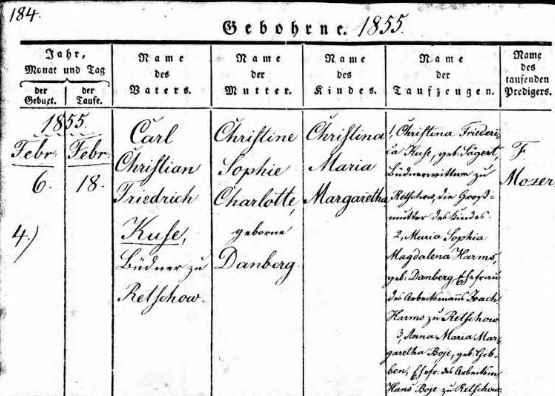 184.
Gebohrne. 1855.
Jahr, Monat und Tag
der Geburt.
der Taufe.
Name des Vaters.
Name der Mutter.
Name des Kindes.
Name der Taufzeugen.
Name des taufenden Predigers.
1855.
Febr. Febr.
6. 18.
4.)
Carl
Christian
Friedrich
Kuse,
Büdner zu
Retschow.
Christine
Sophie
Charlotte,
geborne
Danberg.
Christina
Maria
Margaretha
1, Christina Friederi-
ca Kuse, geb. Sägert,
Büdnerwittwe zu
Retschow, die Groß-
mutter des Kindes.
2, Maria Sophia
Magdalena Harms,
geb. Danberg, Ehefrau
des Arbeitsmanns Joach.
Harms zu Retschow
3, Anna Maria Mar-
garetha Boje, geb.
Ehefr. des
Hans Boje zu Retschow.
F.
Mozer